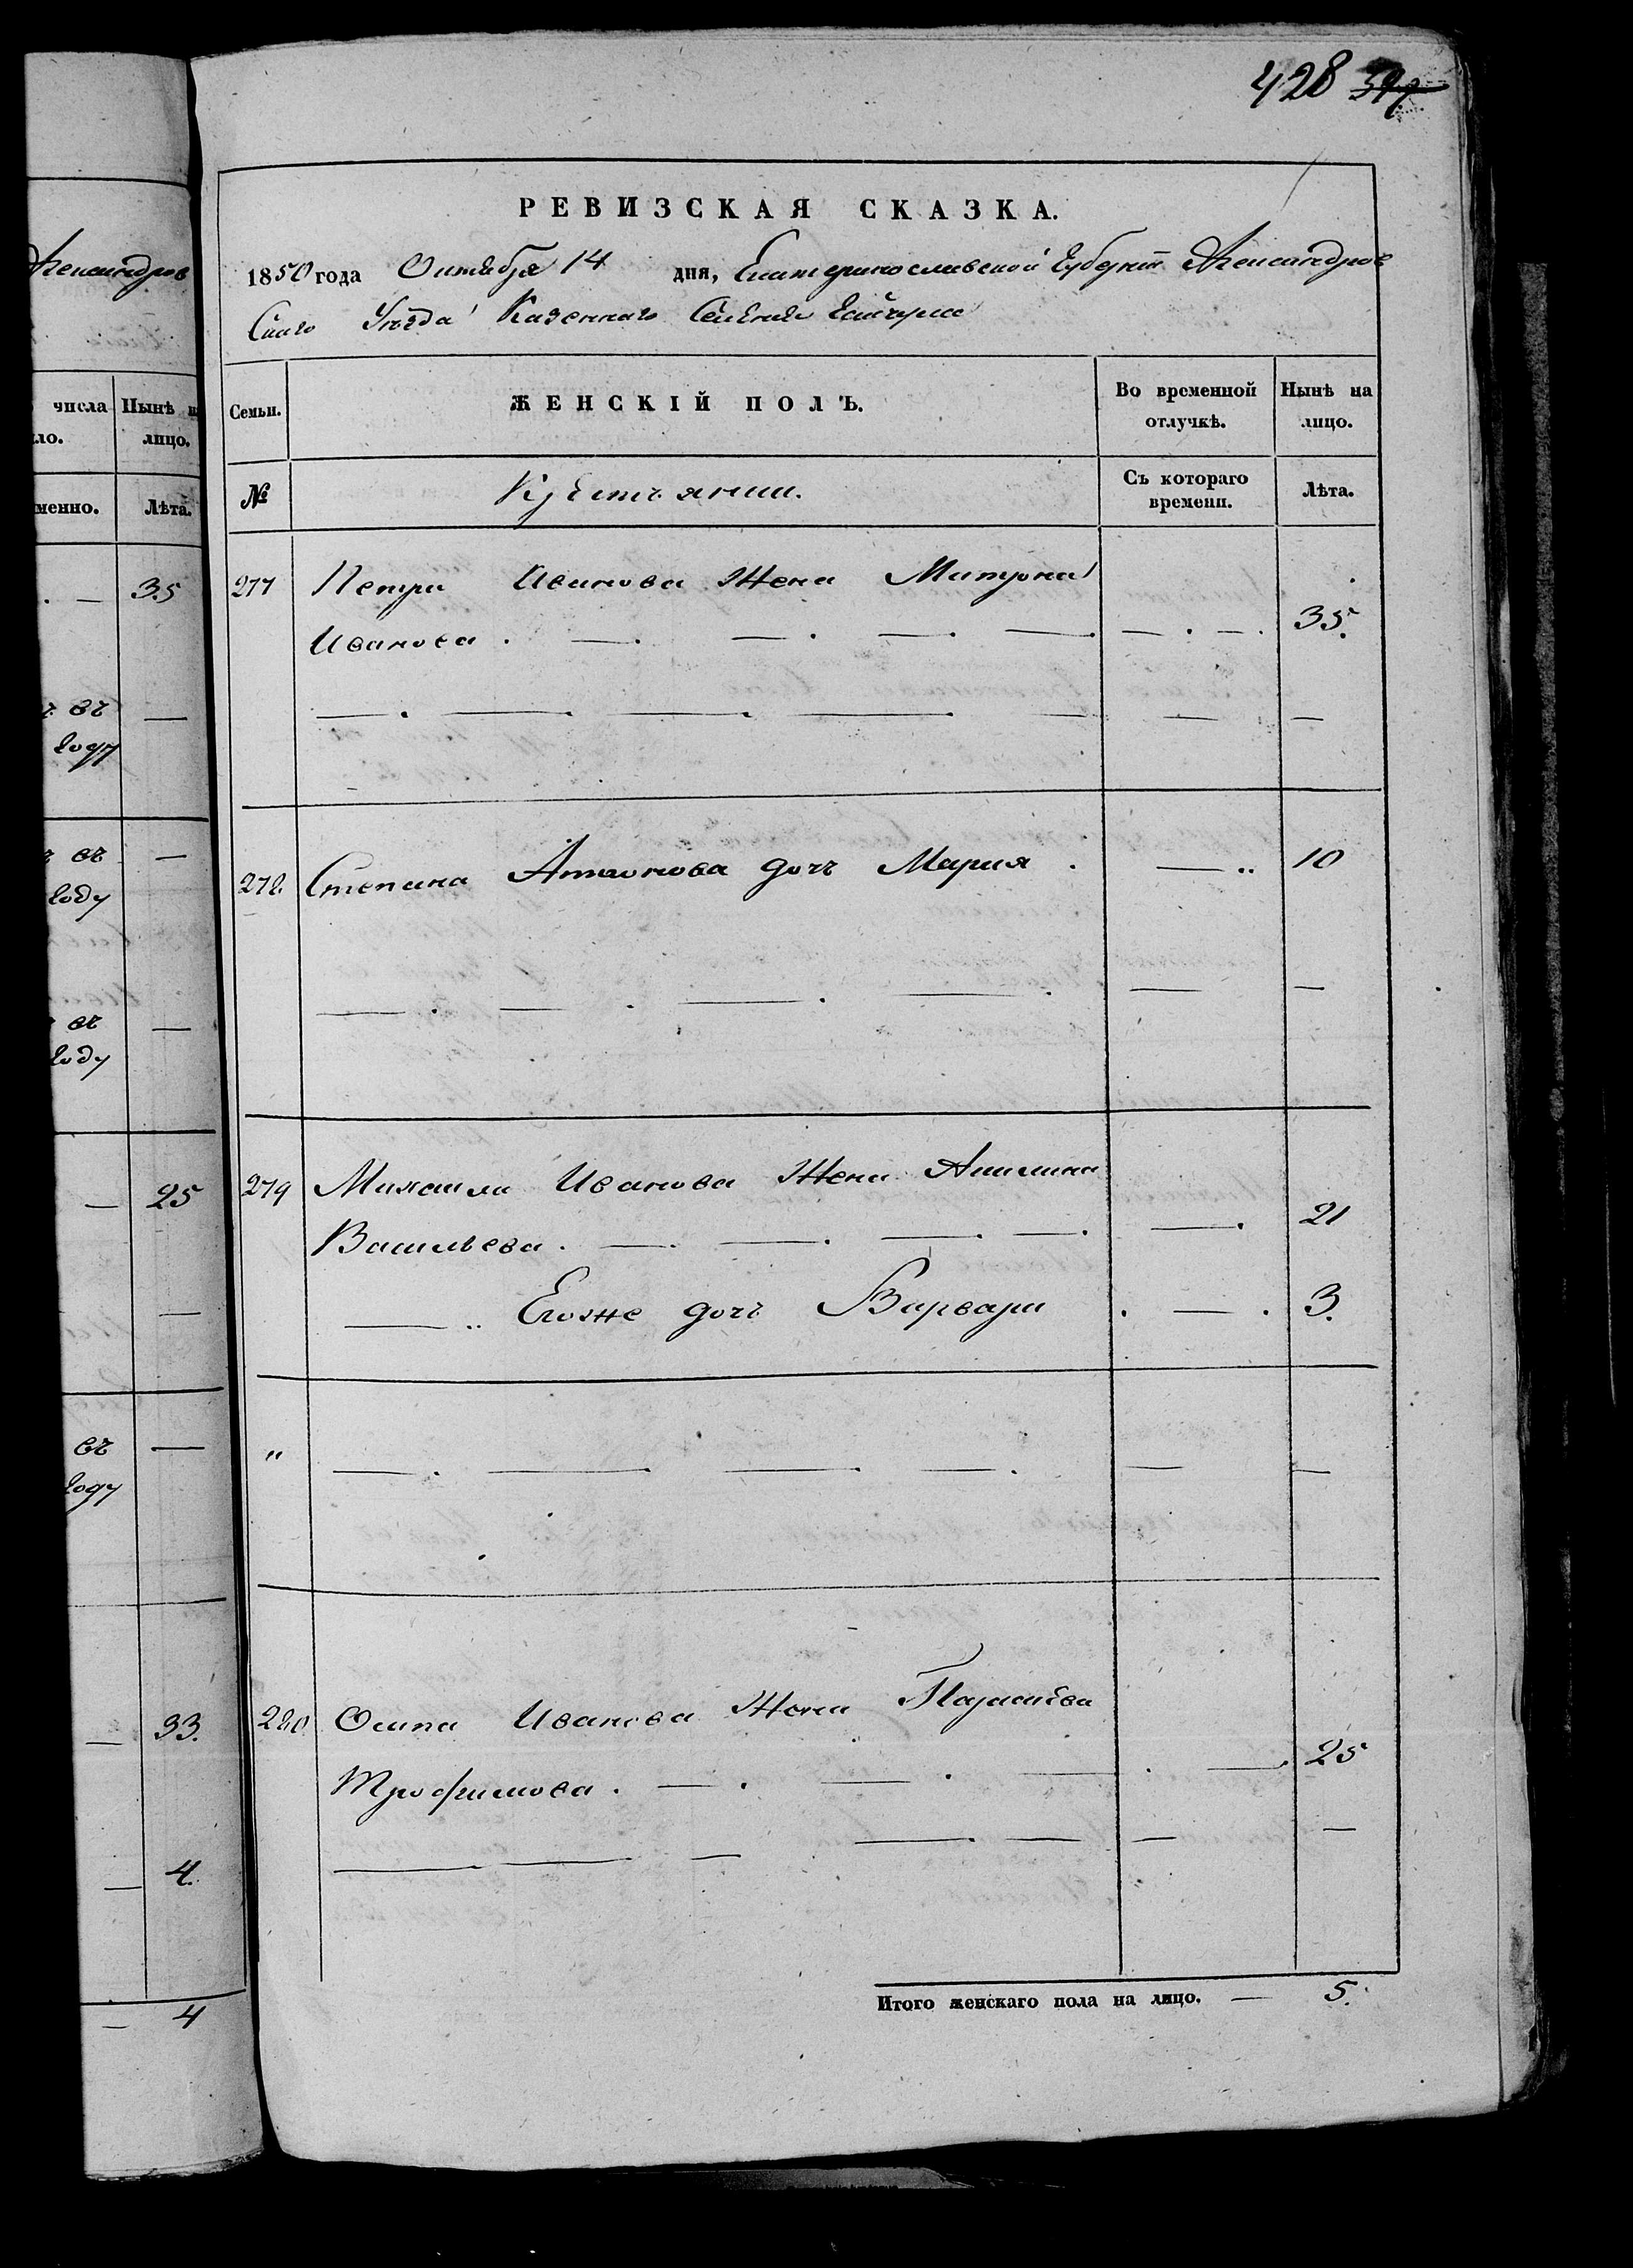 428 397
РЕВИЗСКАЯ СКАЗКА.
1850 года Октября 14 дня, Екатеринославской Губерніи Александров
Скаго Уѣзда Казеннаго Селенія Гайчула
Семьи.
ЖЕНСКІЙ ПОЛЪ.
Во временной отлучкѣ.
Нынѣ на лицо.
№
Крѣстьянки.
Съ котораго времени.
Лѣта.
277 Петра Иванова Жена Матрона
Иванова . — . — . — . — . — . — . 35.
278. Степана Антонова дочь Мария . — .. 10
279 Михаила Иванова Жена Акилина
Васильева . — . — . — . — . — . 21
— .. Егоже дочь Варвара . — . 3.
"
280 Осипа Иванова Жена Параскева
Трофимова . — . — . — . — . 25
Итого женскаго пола на лицо. — 5.
Александров
числа Нынѣ
ло. лицо.
менно. Лѣта.
. — 35
въ —
году
въ —
году
въ —
году
— 25
—
въ —
году
— 33.
— 4.
— 4